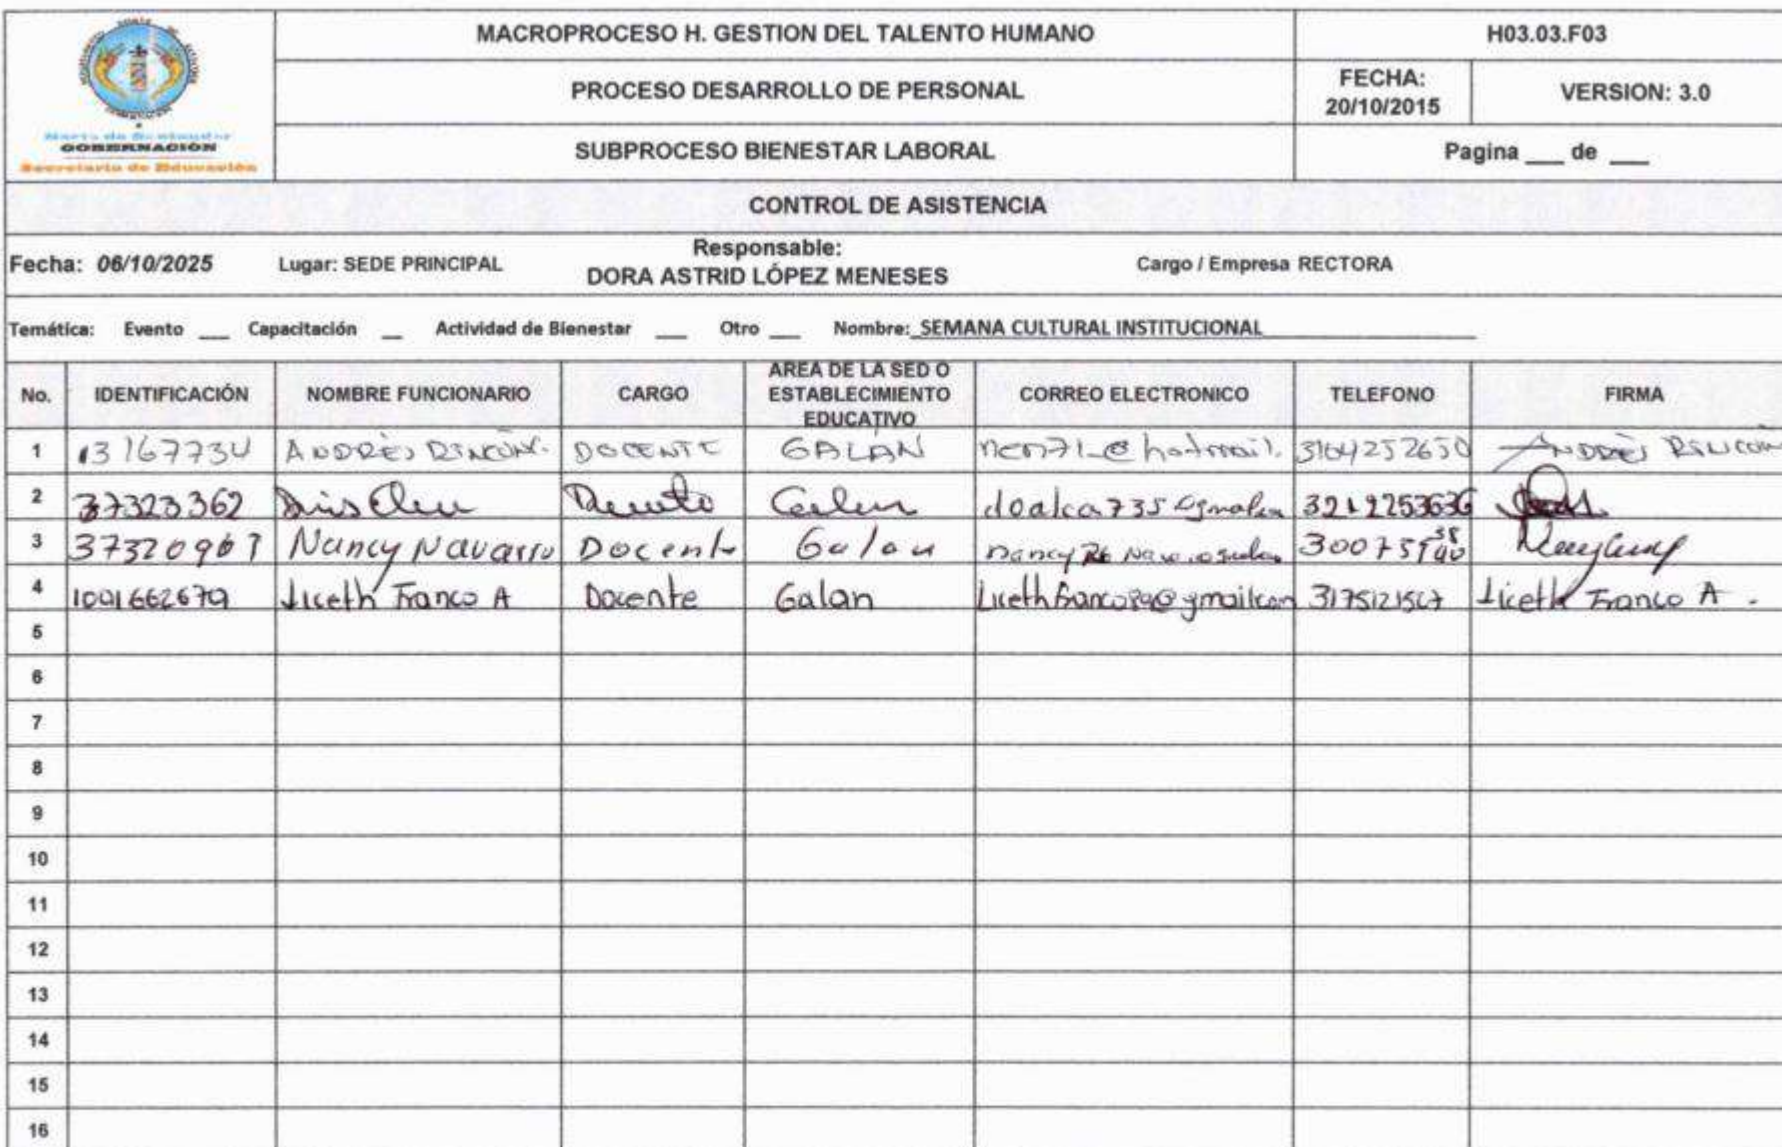 Norte de Santander
GOBERNACIÓN
Secretaría de Educación
MACROPROCESO H. GESTION DEL TALENTO HUMANO
H03.03.F03
PROCESO DESARROLLO DE PERSONAL
FECHA:
20/10/2015
VERSION: 3.0
SUBPROCESO BIENESTAR LABORAL
Pagina ___ de ___
CONTROL DE ASISTENCIA
Fecha: 06/10/2025 Lugar: SEDE PRINCIPAL Responsable: DORA ASTRID LÓPEZ MENESES Cargo / Empresa RECTORA
Temática: Evento ___ Capacitación __ Actividad de Bienestar ___ Otro ___ Nombre: SEMANA CULTURAL INSTITUCIONAL
No. IDENTIFICACIÓN NOMBRE FUNCIONARIO CARGO AREA DE LA SED O ESTABLECIMIENTO EDUCATIVO CORREO ELECTRONICO TELEFONO FIRMA
1 13167734 ANDRÈS RINCÓN. DOCENTE GALÁN nen71_@hotmail. 3164252650 ANDRÈS RINCÓN
2 37323362 3212253636
3 37320967 Nancy Navarro Docente Galan
4 1091662679 Liceth Franco A Docente Galan 3175121567 Liceth Franco A.
5
6
7
8
9
10
11
12
13
14
15
16